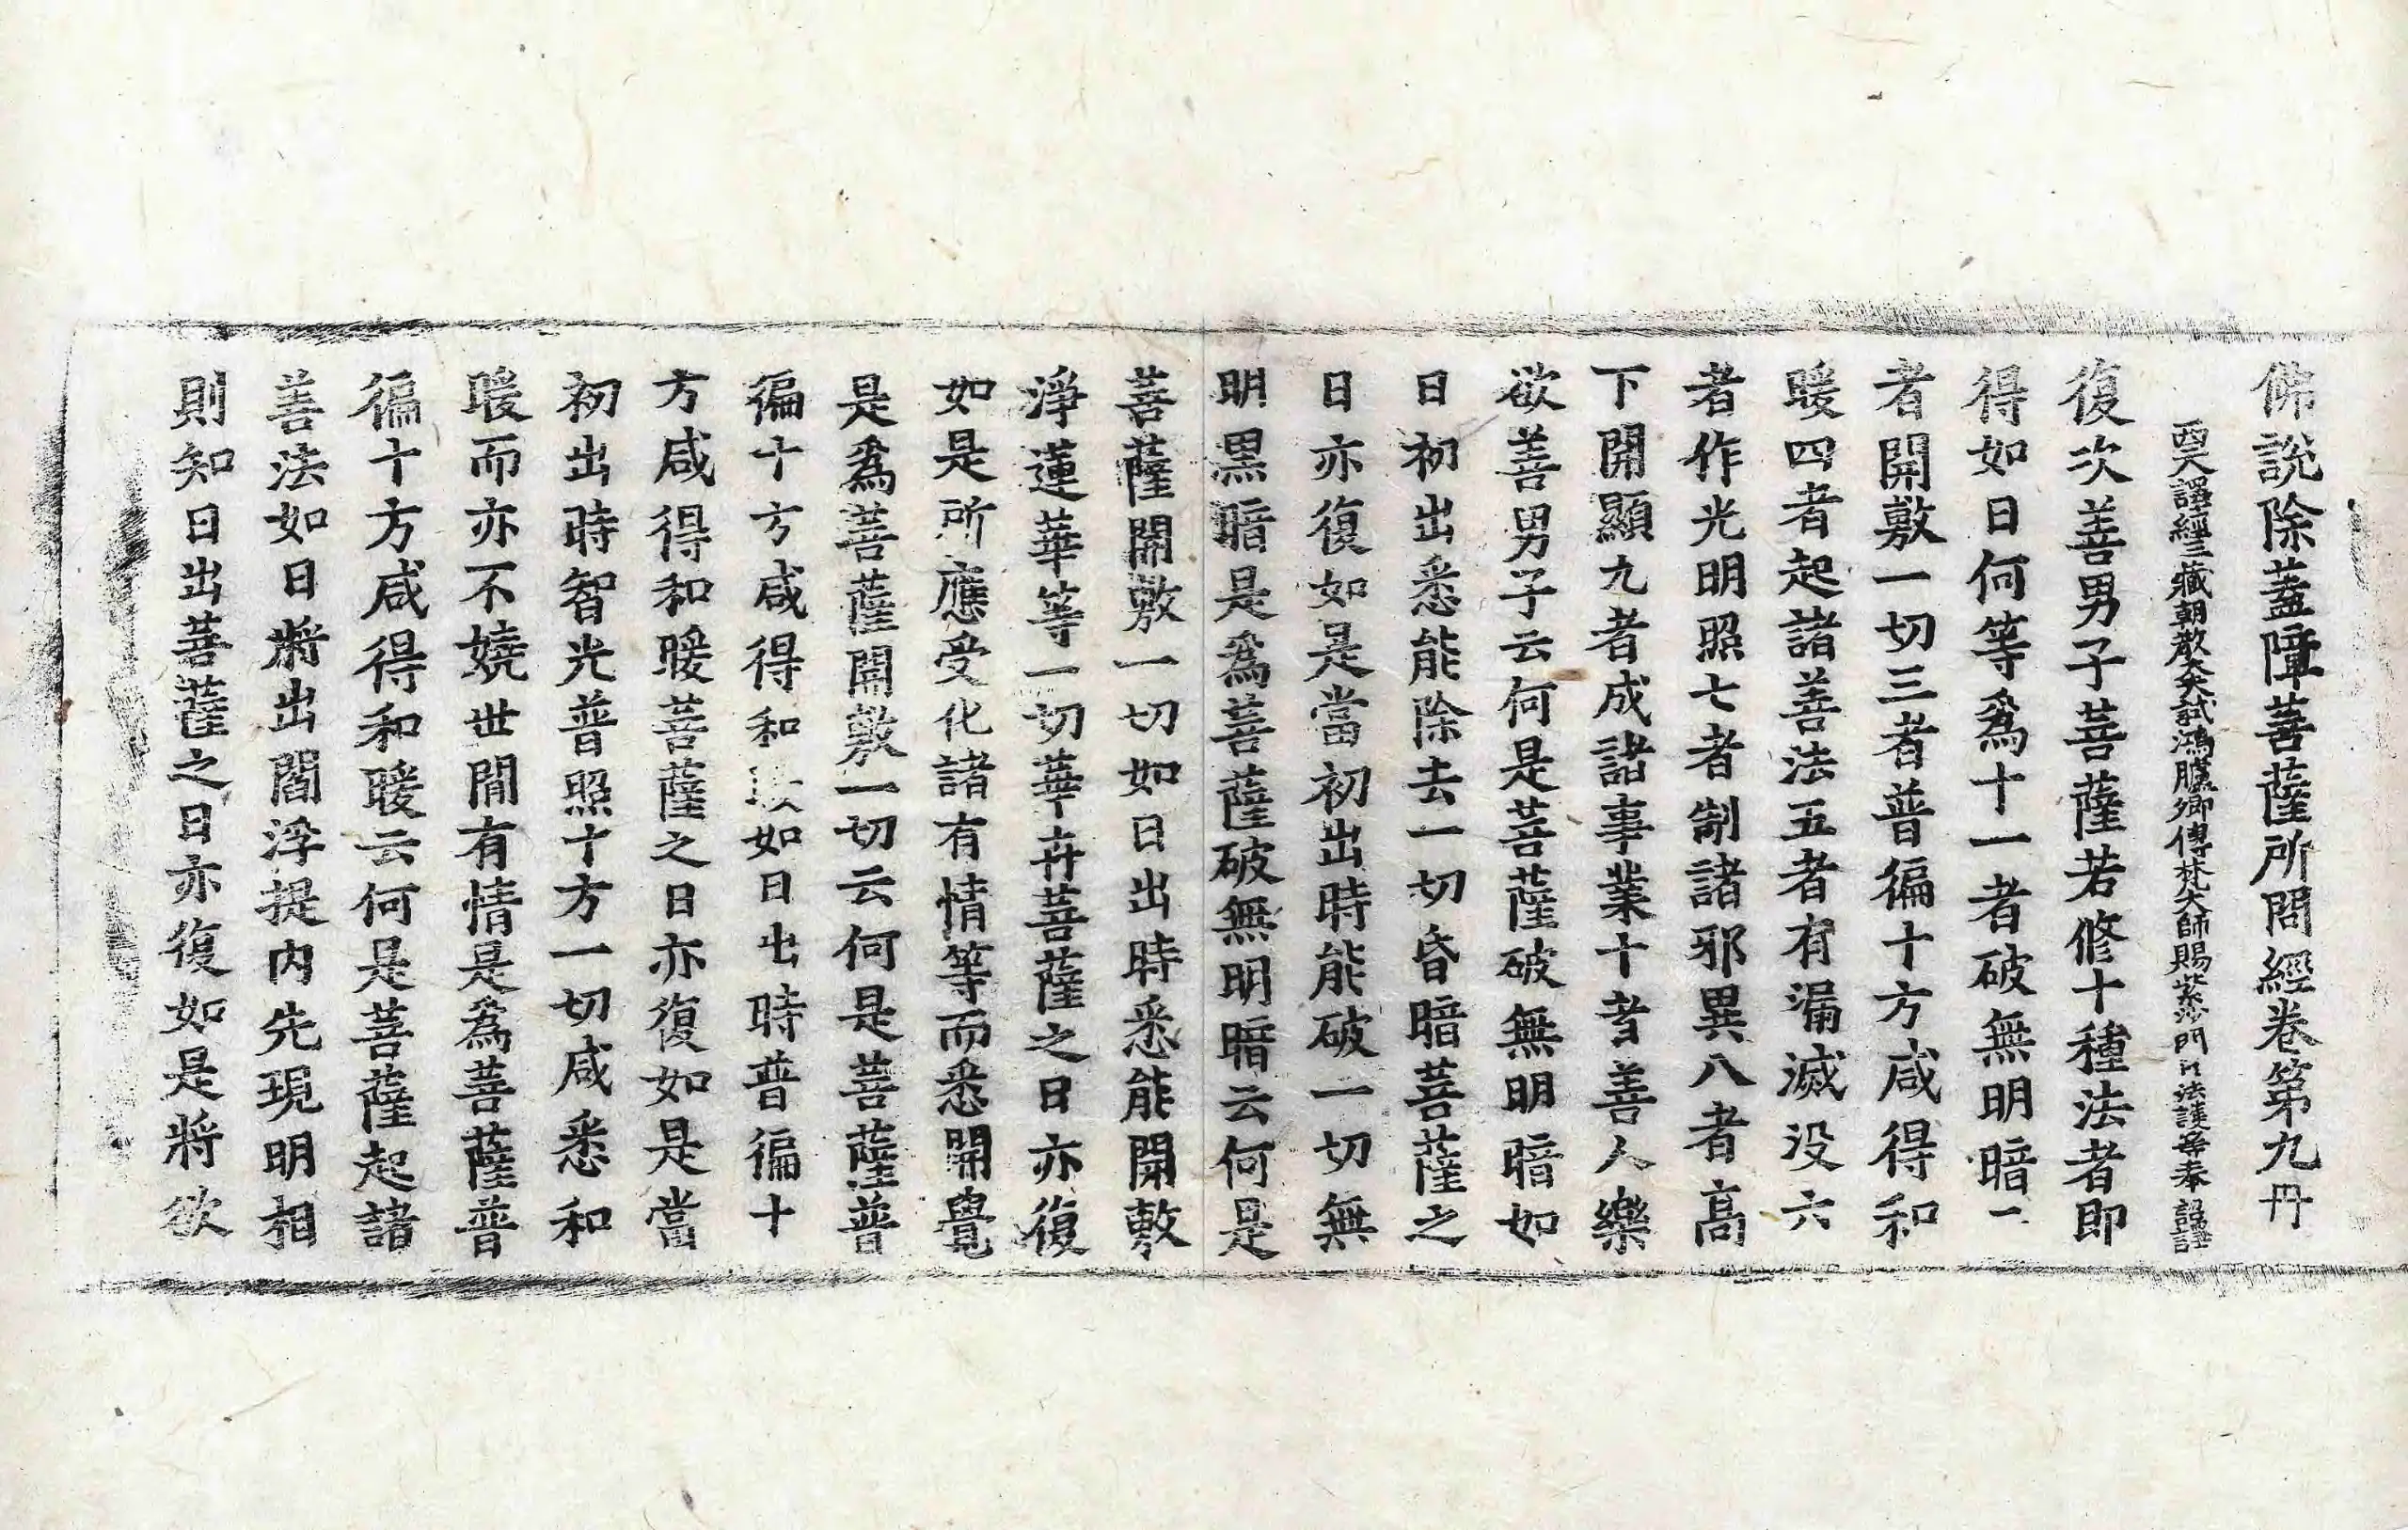 佛說除蓋障菩薩所問經卷第九 冊
西天譯經三藏朝散大夫試鴻臚卿傳梵大師賜紫沙門臣法護等奉 詔譯
復次善男子菩薩若修十種法者即
得如日何等爲十一者破無明暗二
者開敷一切三者普徧十方咸得和
暖四者起諸善法五者有漏滅没六
者作光明照七者制諸邪異八者高
下開顯九者成諸事業十者善人樂
欲善男子云何是菩薩破無明暗如
日初出悉能除去一切昏暗菩薩之
日亦復如是當初出時能破一切無
明黑暗是爲菩薩破無明暗云何是
菩薩開敷一切如日出時悉能開敷
淨蓮華等一切華卉菩薩之日亦復
如是所應受化諸有情等而悉開覺
是爲菩薩開敷一切云何是菩薩普
徧十方咸得和暖如日出時普徧十
方咸得和暖菩薩之日亦復如是當
初出時智光普照十方一切咸悉和
暖而亦不嬈世間有情是爲菩薩普
徧十方咸得和暖云何是菩薩起諸
善法如日將出閻浮提内先現明相
則知日出菩薩之日亦復如是將欲